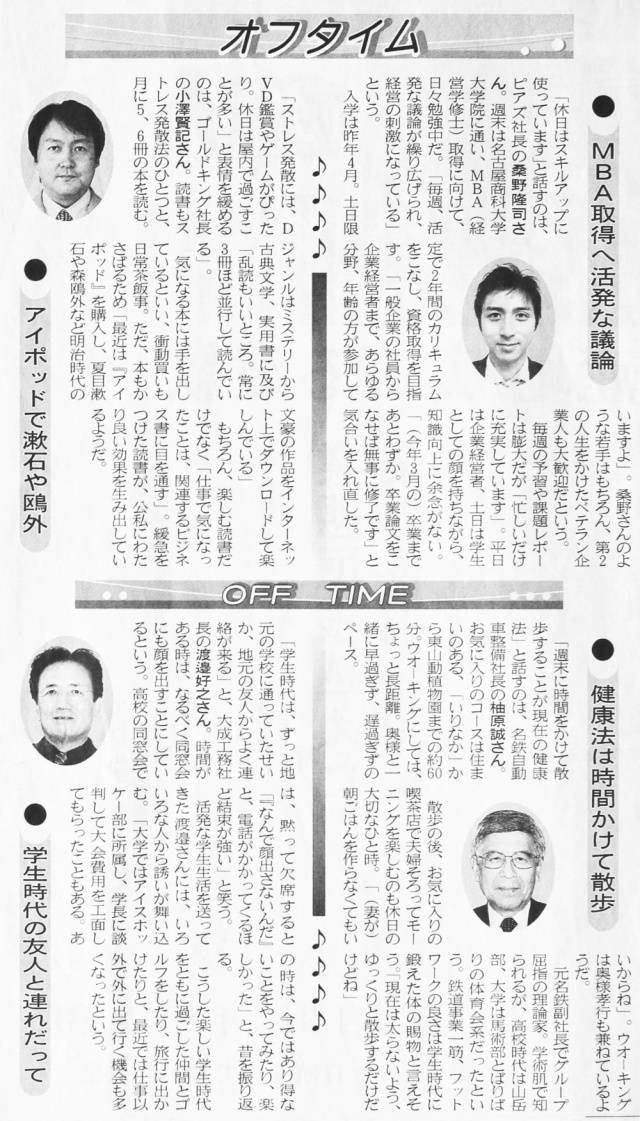 オフタイム
● MBA取得へ活発な議論
「休日はスキルアップに
使っています」と話すのは、
ピアズ社長の桑野隆司さ
ん。週末は名古屋商科大学
大学院に通い、MBA（経
営学修士）取得に向けて、
日々勉強中だ。「毎週、活
発な議論が繰り広げられ、
経営の刺激になっている」
という。
入学は昨年4月。土日限
定で2年間のカリキュラム
をこなし、資格取得を目指
す。「一般企業の社員から
企業経営者まで、あらゆる
分野、年齢の方が参加して
いますよ」。桑野さんのよ
うな若手はもちろん、第2
の人生をかけたベテラン企
業人も大歓迎だという。
毎週の予習や課題レポー
トは膨大だが「忙しいだけ
に充実しています」。平日
は企業経営者、土日は学生
としての顔を持ちながら、
知識向上に余念がない。
「（今年3月の）卒業まで
あとわずか。卒業論文をこ
なせば無事に修了です」と
気合いを入れ直した。
♪♪♪♪
「ストレス発散には、D
VD鑑賞やゲームがぴった
り。休日は屋内で過ごすこ
とが多い」と表情を緩める
のは、ゴールドキング社長
の小澤賢記さん。読書もス
トレス発散法のひとつと、
月に5、6冊の本を読む。
ジャンルはミステリーから
古典文学、実用書に及び
「乱読もいいところ。常に
3冊ほど並行して読んでい
る」。
気になる本には手を出し
ているといい、衝動買いも
日常茶飯事。ただ、本もか
さばるため「最近は『アイ
ポッド』を購入し、夏目漱
石や森鴎外など明治時代の
文豪の作品をインターネッ
ト上でダウンロードして楽
しんでいる」
もちろん、楽しむ読書だ
けでなく「仕事で気になっ
たことは、関連するビジネ
ス書に目を通す」。緩急を
つけた読書が、公私にわた
り良い効果を生み出してい
るようだ。
● アイポッドで漱石や鴎外
OFF TIME
● 健康法は時間かけて散歩
「週末に時間をかけて散
歩することが現在の健康
法」と話すのは、名鉄自動
車整備社長の柚原誠さん。
お気に入りのコースは住ま
いのある、「いりなか」か
ら東山動植物園までの約60
分。ウオーキングにしては、
ちょっと長距離。奥様と一
緒に早過ぎず、遅過ぎずの
ペース。
散歩の後、お気に入りの
喫茶店で夫婦そろってモー
ニングを楽しむのも休日の
大切なひと時。「（妻が）
朝ごはんを作らなくてもい
いからね」。ウオーキング
は奥様孝行も兼ねているよ
うだ。
元名鉄副社長でグループ
屈指の理論家。学術肌で知
られるが、高校時代は山岳
部、大学は馬術部とばりば
りの体育会系だったとい
う。鉄道事業一筋、フット
ワークの良さは学生時代に
鍛えた体の賜物と言えそ
う。「現在は太らないよう、
ゆっくりと散歩するだけだ
けどね」
♪♪♪♪
「学生時代は、ずっと地
元の学校に通っていたせい
か、地元の友人からよく連
絡が来る」と、大成工務社
長の渡邉好之さん。時間が
ある時は、なるべく同窓会
にも顔を出すことにしてい
るという。高校の同窓会で
は、黙って欠席すると
「『なんで顔出さないんだ』
と、電話がかかってくるほ
ど結束が強い」と笑う。
活発な学生生活を送って
きた渡邉さんには、いろ
いろな人から誘いが舞い込
む。「大学ではアイスホッ
ケー部に所属し、学長に談
判して大会費用を工面し
てもらったこともある。あ
の時は、今ではあり得な
いことをやってみたり、楽
しかった」と、昔を振り返
る。
こうした楽しい学生時代
をともに過ごした仲間とゴ
ルフをしたり、旅行に出か
けたりと、最近では仕事以
外で外に出て行く機会も多
くなったという。
● 学生時代の友人と連れだって